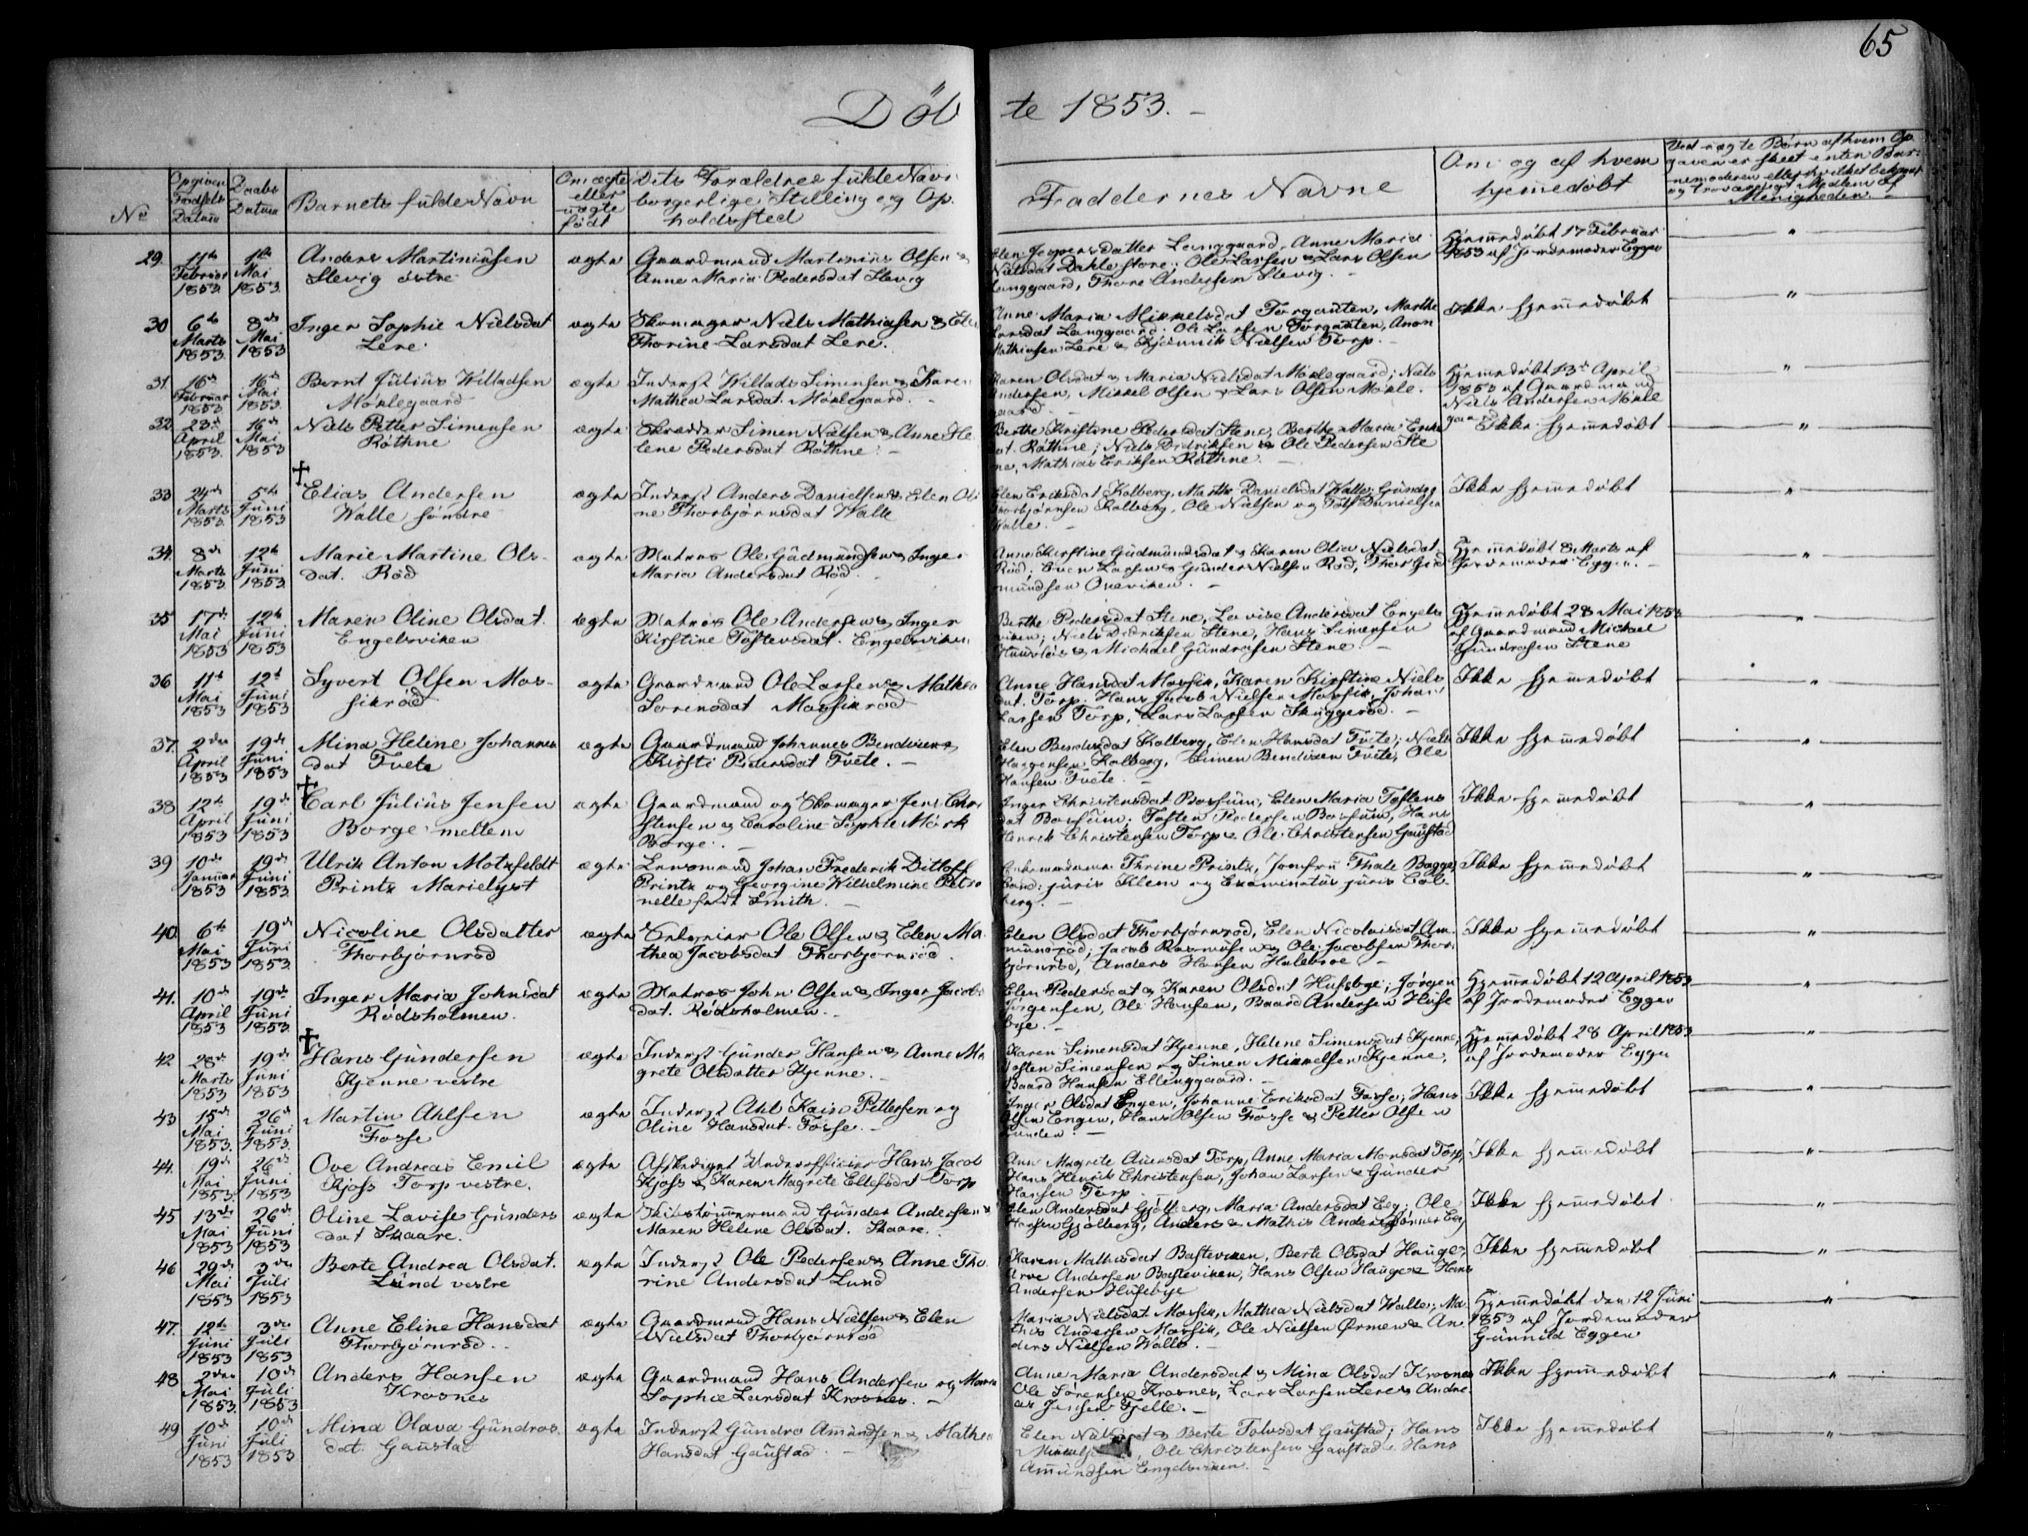 65
Döbte 1853.
No
Opgiven Fødsels Datum
Daabs Datum
Barnets fulde Navn
Om ægte eller uægte født
Dets Forældres fulde Navn borgerlige Stilling og Opholdssted
Faddernes Navne
Om og af hvem hjemedøbt
Ved uægte Børn af hvem Opgaven er skeet enten Barnemoderen eller hvilket bekjendt og troværdigt Medlem af Menigheden.
29. 11te Februar 1853. 1ste Mai 1853.
Anders Martiniusen
Slevig östre
ægte
Gaardmand Martinius Olsen &
Anne Maria Pedersdat Slevig
Elen Jespersdatter Langgaard, Anne Maria
Nielsdat Dahle store; Ole Larsen & Lars Olsen
Langgaard, Thore Andersen Slevig. -
Hjem̅edøbt 17 Februar
1853 af Jordemoder Eggen
"
30 6te Marts 1853. 8de Mai 1853
Inger Sophie Nielsdat
Lere.
ægte
Skomager Niels Mathiasen & Elen
Thorine Larsdat Lere.
Anne Maria Mikkelsdat Torgauten, Marthe
Larsdat Langgaard; Ole Larsen Torgauten, Anon
Mathiasen Lere & Kjennik Nielsen Torp. -
Ikke hjem̅edøbt
"
31. 16de Februar 1853 16de Mai 1853.
Bernt Julius Willadsen
Mørlegaard
ægte
Inderst Willads Simensen & Karen
Mathea Larsdat. Mørlegaard. -
Karen Olsdat & Maria Nielsdat Mørlegaard; Niels
Andersen, Mikkel Olsen & Lars Olsen Mørle
gaard -
Hjem̅edøbt 13de April
1853 af Gaardmand
Niels Andersen Mørle
gaard
"
32. 23de April 1853. 16de Mai 1853
Niels Petter Simensen
Røthne
ægte
Skrædder Simen Nielsen & Anne He
lene Pedersdat Røthne. -
Berthe Kirstine Pedersdat Stene, Berthe Maria Eriks
dat. Röthne; Niels Didriksen & Ole Pedersen Ste
ne, Mathias Eriksen Röthne. -
Ikke hjem̅edøbt
"
33 24de Marts 1853. 5te Juni 1853
† Elias Andersen
Walle søndre
ægte
Inderst Anders Danielsen & Elen Oli
ne Thorbjørnsdat Walle
Elen Eriksdat Kolberg, Marthe Danielsdat Walle; Gunder
Thorbjørnsen Kolberg, Ole Nielsen og Danielsen
Walle. -
Ikke hjem̅edøbt
"
34. 8de Marts 1853 12te Juni 1853
Marie Martine Ols-
dat. Röd
ægte
Matros Ole Gudmundsen & Inger
Maria Andersdat Röd.
Anne Kirstine Gudmundsdat & Karen Olia Nielsdat
Röd; Even Larsen & Gunder Nielsen Röd, Thor Gud
mundsen Oueviken. -
Hjem̅edøbt 8 Marts af
Jordemoder Eggen. -
"
35 17de Mai 1853 12te Juni 1853
Maren Oline Olsdat.
Engelsviken
ægte
Matros Ole Andersen & Inger
Kirstine Toftevsdat. Engelsviken
Berthe Pedersdat Stene, Lovise Andersdat Engels
viken; Niels Didriksen Stene, Hans Simensen
Huusløs & Michael Gundrosen Stene -
Hjem̅edøbt 28 Mai 1853
af Gaardmand Michael
Gundrosen Stene
"
36 11te Mai 1853 12te Juni 1853
Syvert Olsen Mos-
sikröd
ægte
Gaardmand Ole Larsen & Mathea
Sørensdat Mossikröd
Anne Hansdat Mossik, Karen Kirstine Niels
dat. Torp; Hans Jacob Nielsen Mossik, Johan
Larsen Torp, Lars Larsen Skuggeröd. -
Ikke hjem̅edøbt
"
37. 2den April 1853 19de Juni 1853
Mina Helene Johannes
dat Tvete
ægte
Gaardmand Johannes Bendixen &
Kirsti Pedersdat Tvete. -
Elen Bendixdat Kolberg, Elen Hansdat Tvete; Niels
Haagensen Kolberg, Simen Bendixen Tvete, Ole
Hansen Tvete. -
Ikke hjem̅edøbt
"
38 12te April 1853 19de Juni 1853
† Carl Julius Jensen
Borge mellem
ægte
Gaardmand og Skomager Jens Chri
stensen & Caroline Sophie Mørk
Borge. -
Inger Christensdat Borsum, Elen Maria Toftens
dat Borsum; Toften Pedersen Borsum, Hans
Henrik Christensen Torp & Ole Christensen Gaustad
Ikke hjem̅edøbt
"
39 10de Januar 1853 19de Juni 1853
Ulrik Anton Motzfeldt
Printz Marielyst
ægte
Lensmand Johan Frederik Ditloff
Printz og Georgine Wilhelmine Petro
nelle født Smith. -
Enkemadame Thrine Printz, Jomfru Thale Bagge,
Cand: juris Klem og Examinatus juris Col-
berg. -
Ikke hjem̅edøbt
"
40 6te Mai 1853 19de Juni 1853.
Nicoline Olsdatter
Thorbjørnröd
ægte
Selveier Ole Olsen & Elen Ma-
thea Jacobsdat Thorbjørnröd.
Elen Olsdat Thorbjørnröd, Elen Nicolaisdat Am-
mundröd; Jacob Rasmusen & Ole Jacobsen Thor
bjørnröd, Anders Hansen -
Ikke hjem̅edøbt
"
41. 10de April 1853 19de Juni 1853.
Inger Maria Johnsdat
Rödsholmen.
ægte
Matros John Olsen & Inger Jacobs
dat. Rödsholmen. -
Elen Pedersdat & Karen Olsdat Husebye; Jørgen
Jørgensen, Ole Hansen, Baard Andersen Huse
bye. -
Hjem̅edøbt 12 April 1853
af Jordemoder Eggen
"
42 28de Marts 1853 19de Juni 1853
† Hans Gundersen
Kjenne vestre
ægte
Inderst Gunder Hansen & Anne Ma
grete Olsdatter Kjenne. -
Karen Simensdat Kjenne, Helene Simensdat Kjenne;
Toften Simensen og Simen Mikkelsen Kjenne,
Baard Hansen Ellenggaard. -
Hjem̅edøbt 28 April 1853
af Jordemoder Eggen
"
43 15de Mai 1853. 26de Juni 1853.
Martin Ahlsen
Fosse
ægte
Inderst Ahl Kaisa Pettersen og
Oline Hansdat. Fosse. -
Inger Olsdat Engen, Johanne Eriksdat Fosse; Hans
Olsen Engen, Hans Olsen Fosse & Petter Olsen
Lunden. -
Ikke hjem̅edøbt
"
44. 19de Mai 1853. 26de Juni 1853
Ove Andreas Emil
Kjoss Torp vestre.
ægte
Afskediget Underofficier Hans Jacob
Kjoss & Karen Magrete Ellefsdat Torp
Ann Magrete Torp, Anne Maria Monsdat Torp;
Hans Henrik Christensen, Johan Larsen & Gunder
Hansen Torp
Ikke hjem̅edøbt
"
45 13de Mai 1853 26de Juni 1853
Oline Lavise Gunders
dat Skaare.
ægte
Skibstømmermand Gunder Andersen &
Maren Helene Olsdat. Skaare.
Elen Andersdat Gjölberg, Maria Andersdat Eeg; Ole
Hansen Gjölberg, Anders & Mathis Andersensønner Eeg
Ikke hjem̅edøbt
"
46 29de Mai 1853 3die Juli 1853
Berte Andrea Olsdat.
Lund vestre
ægte
Inderst Ole Pedersen & Anne Tho-
rine Andersdat Lund
Karen Mathisdat Basteviken, Berte Olsdat Hauge;
Arve Andersen Basteviken, Hans Olsen Hauge & Hans
Andersen Husebye
Ikke hjem̅edøbt
"
47. 12te Juni 1853 3die Juli 1853
Anne Eline Hansdat
Thorbjørnröd. -
ægte
Gaardmand Hans Nielsen & Elen
Nielsdat Thorbjørnröd
Maria Nielsdat Mossik, Mathea Nielsdat Walle; Ma-
this Andersen Mossik, Ole Nielsen Ørmen & An
ders Nielsen Walle. -
Hjem̅edøbt den 12 Juni
1853 af Jordemoder
Gunnild Eggen
"
48 2den Mai 1853. 10de Juli 1853
Anders Hansen
Krosnes
ægte
Gaardmand Hans Andersen og Maren
Sophie Larsdat Krosnes. -
Anne Maria Andersdat & Mina Olsdat Krosnes
Ole Sørensen Krosnes, Lars Larsen Lere & Andre
as Jensen Fjelle. -
Ikke hjem̅edøbt
"
49 10de Juni 1853 10de Juli 1853
Mina Olava Gundros
dat. Gaustad
ægte
Inderst Gundro Amundsen & Mathea
Hansdat Gaustad -
Elen Nielsdat & Berte Gaustad; Hans
Ole Christensen Gaustad & Hans
Amundsen Engelsviken. -
Ikke hjem̅edøbt
"